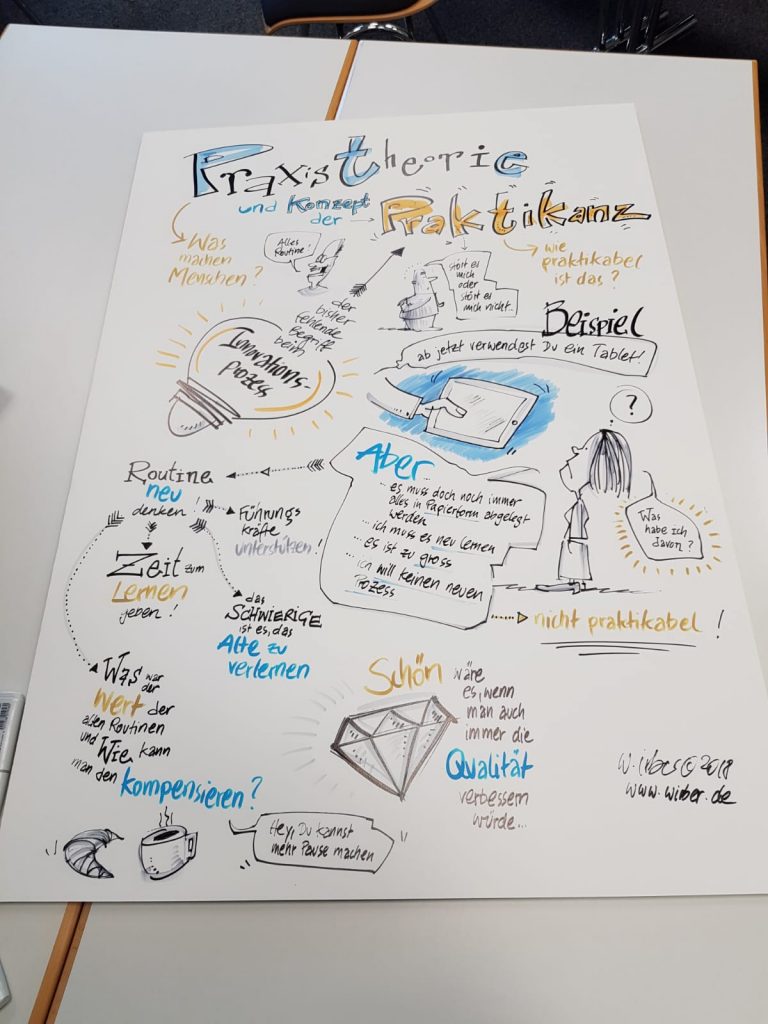 Praxistheorie
und Konzept
der
Praktikanz
Was
machen
Menschen?
Alles
Routine!
stört es
mich
oder
stört es
mich nicht...
wie
praktikabel
ist das?
der
bisher
fehlende
Begriff
beim
Innovations-
Prozess
Beispiel
ab jetzt verwendest Du ein Tablet!
?
Was
habe ich
davon?
Aber
... es muss doch noch immer
alles in Papierform abgelegt
werden
... ich muss es neu lernen
... es ist zu gross
... ich will keinen neuen
Prozess
nicht praktikabel!
Routine
neu
denken!
Führungs
kräfte
unterstützen!
Zeit zum
Lernen
geben!
das
SCHWIERIGE
ist es, das
Alte zu
verlernen
Was war
der
Wert der
alten Routinen
und Wie kann
man den kompensieren?
Hey, Du kannst
mehr Pause machen
Schön wäre
es, wenn
man auch
immer die
Qualität
verbessern
würde...
©2018